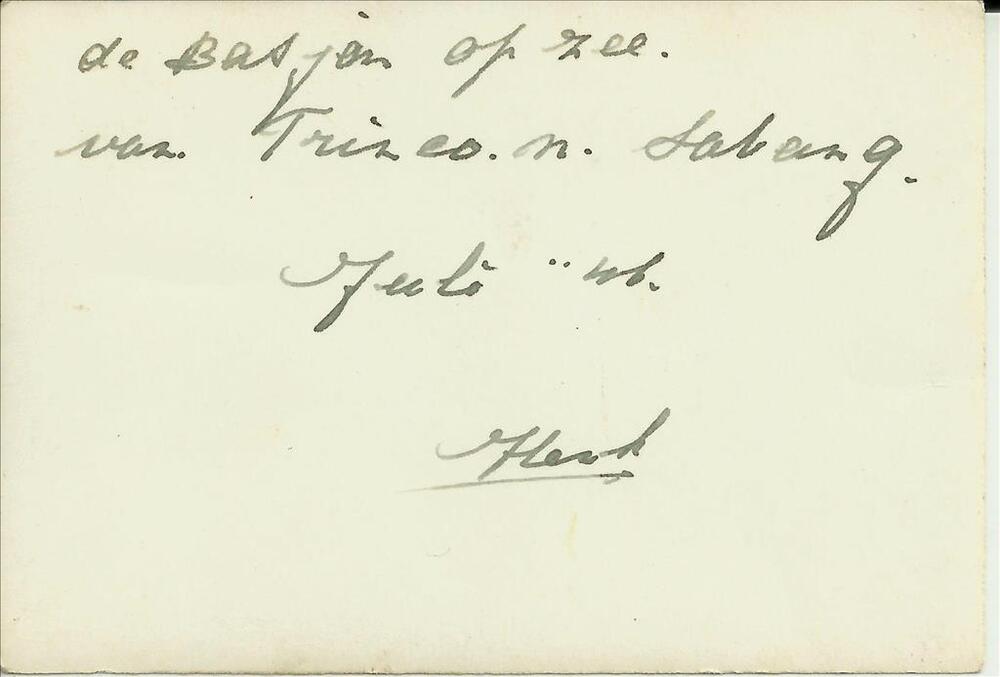 de Basjan op zee.
van Trinco. n. Sabang.
Juli "46.
Henk